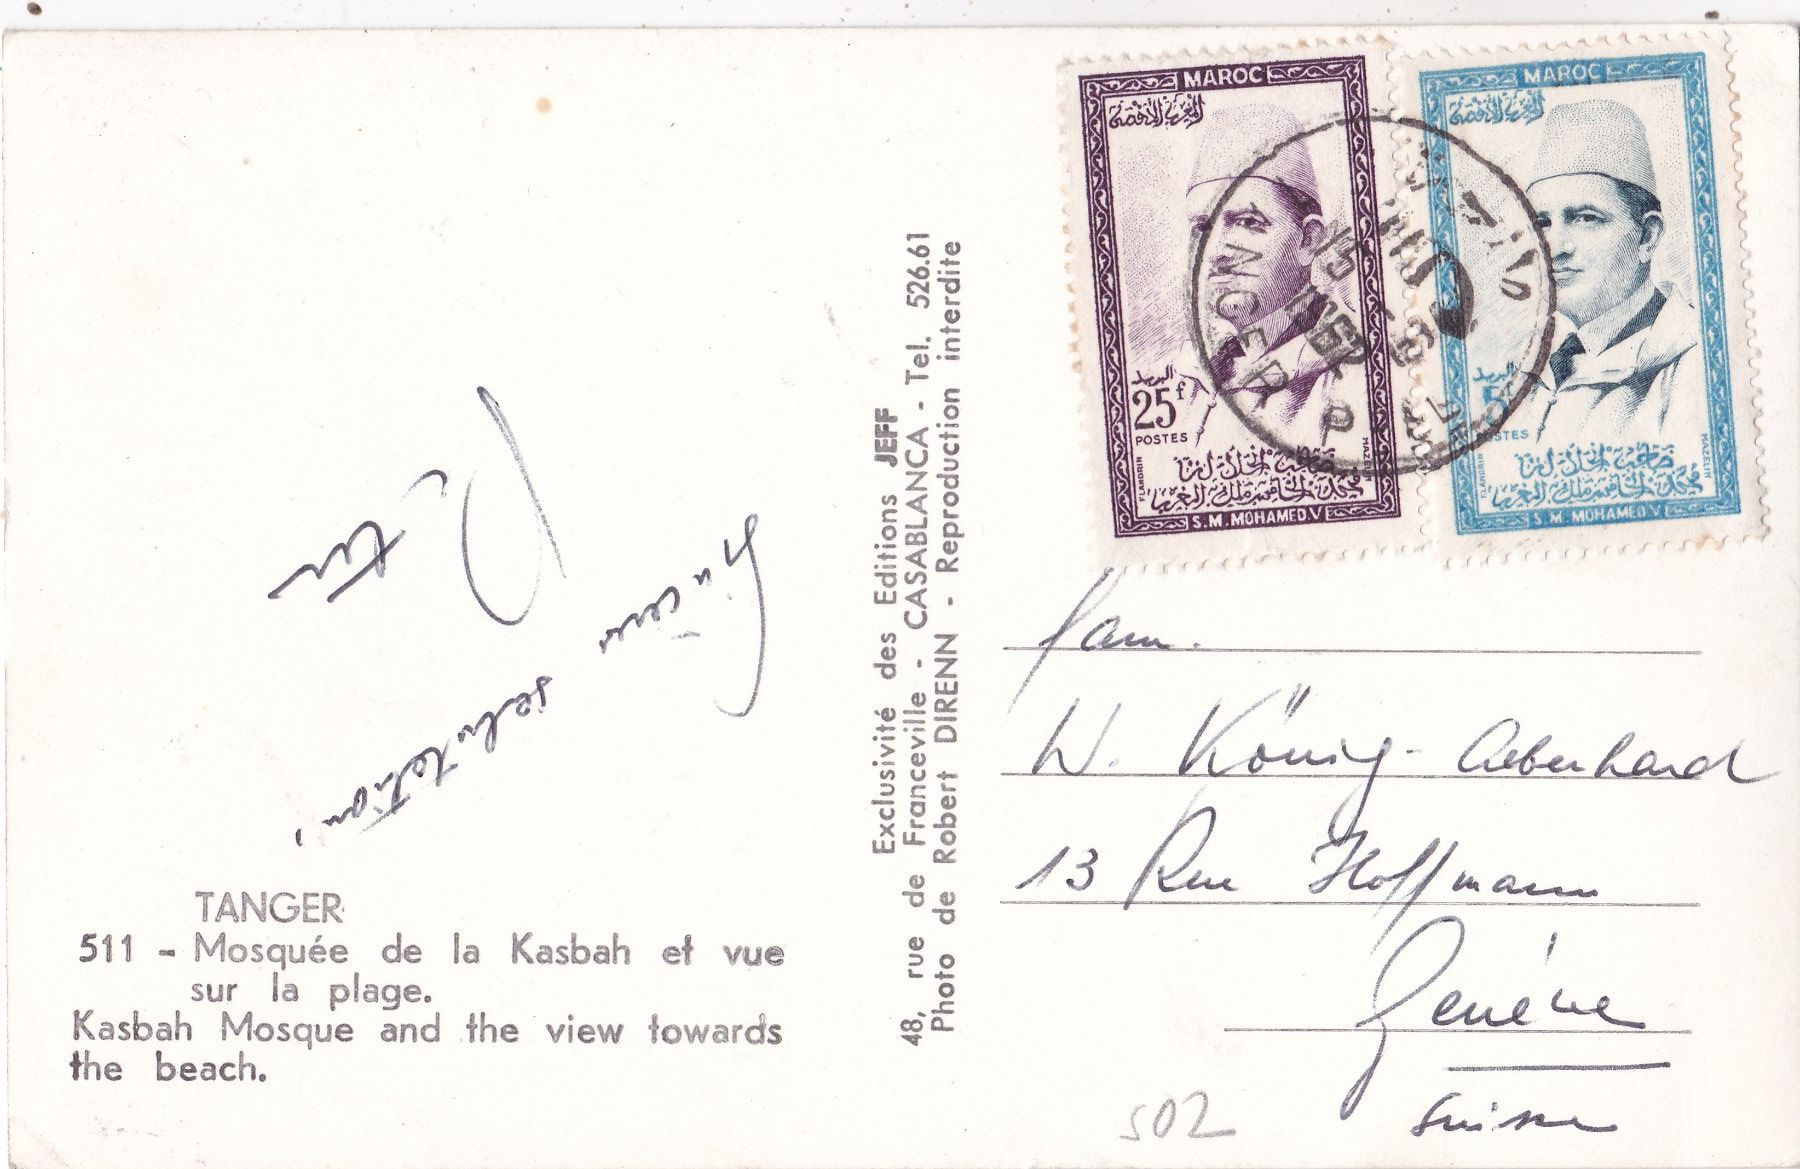 Sincères
salutations
TANGER
511 - Mosquée de la Kasbah et vue
sur la plage.
Kasbah Mosque and the view towards
the beach.
Exclusivité des Editions JEFF
48, rue de Franceville - CASABLANCA - Tel. 526.61
Photo de Robert DIRENN - Reproduction interdite
MAROC
25f
البريد
POSTES
FLANDRIN
MAZELIN
صاحب الجلالة
محمد الخامس ملك المغرب
S.M. MOHAMED.V
MAROC
البريد
5
POSTES
FLANDRIN
MAZELIN
صاحب الجلالة
محمد الخامس ملك المغرب
S.M. MOHAMED.V
TANGER P
Fam.
W. König - Aeberhard
13 Rue Hoffmann
Genève
Suisse
502